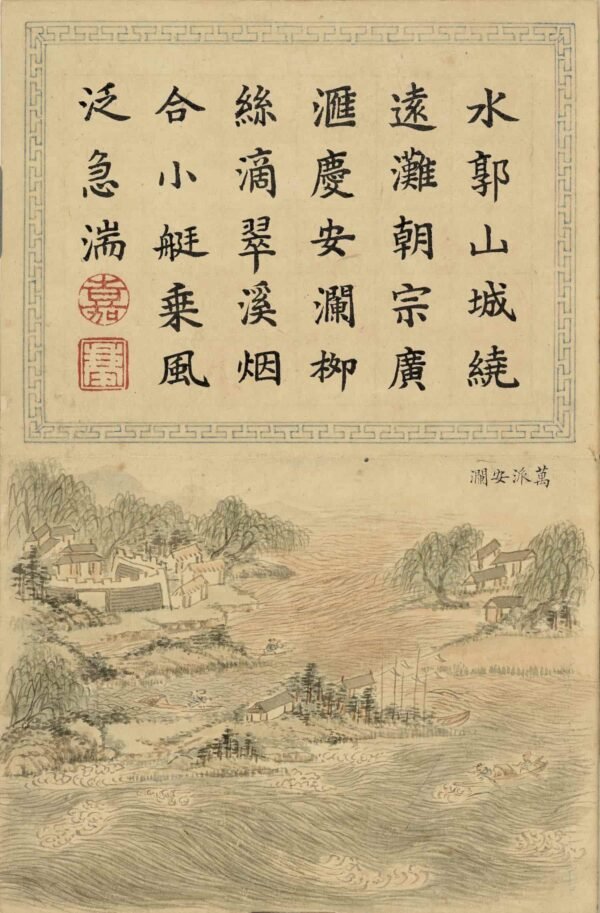 水郭山城繞
遠灘朝宗廣
滙慶安瀾栁
絲滴翠溪烟
合小艇乗風
泛急湍
嘉
萬派安瀾